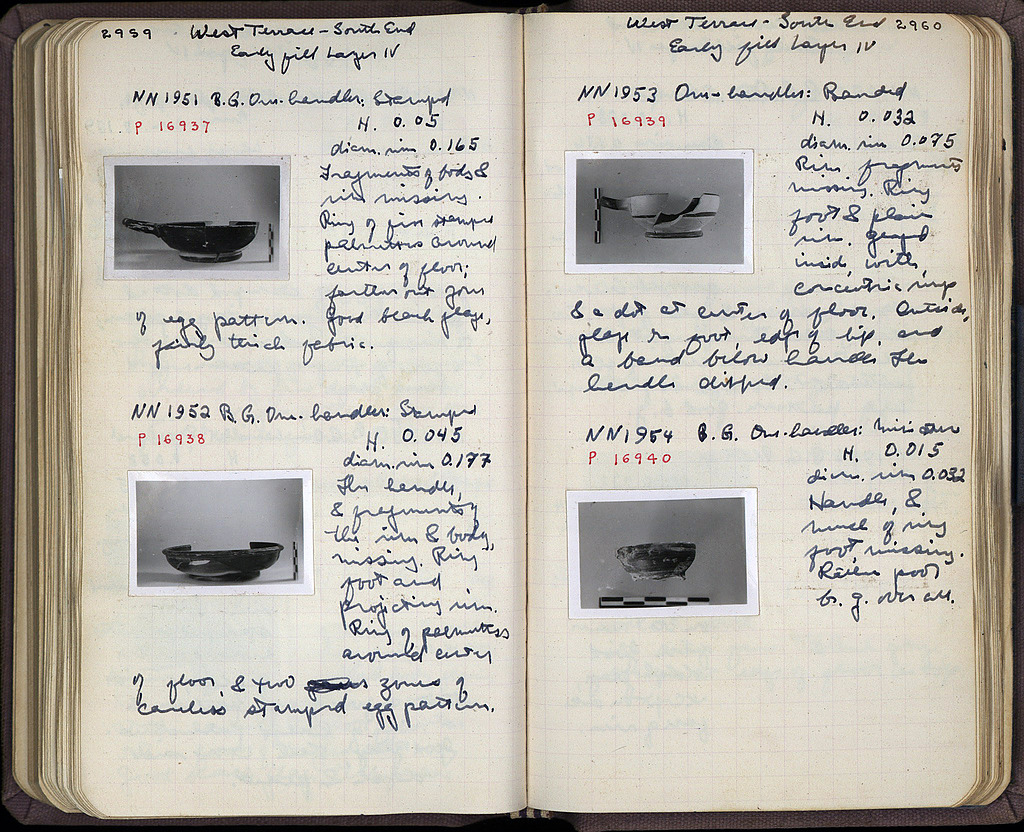 2959 West Terrace - South End
Early fill Layer IV
NN 1951 B.G. One-handler: Stamped
P 16937
H. 0.05
diam. rim 0.165
Fragments of body &
rim missing.
Ring of five stamped
palmettes around
center of floor;
farther out zone
of egg pattern. Good black glaze,
fairly thick fabric.
NN 1952 B.G. One-handler: Stamped
P 16938
H. 0.045
diam. rim 0.177
The handle,
& fragments of
the rim & body,
missing. Ring
foot and
projecting rim.
Ring of palmettes
around center
of floor, & two zones of
careless stamped egg pattern.
West Terrace - South End 2960
Early fill Layer IV
NN 1953 One-handler: Banded
P 16939
H. 0.032
diam. rim 0.075
Rim fragments
missing. Ring
foot & plain
rim. glazed
inside, with
concentric rings
& a dot at center of floor. Outside,
glaze on foot, edge of lip, and
a band below handle. The
handle dipped.
NN 1954 B.G. One-handler: Miniature
P 16940
H. 0.015
diam. rim 0.032
Handle, &
much of ring
foot missing.
Rather poor
b. g. over all.